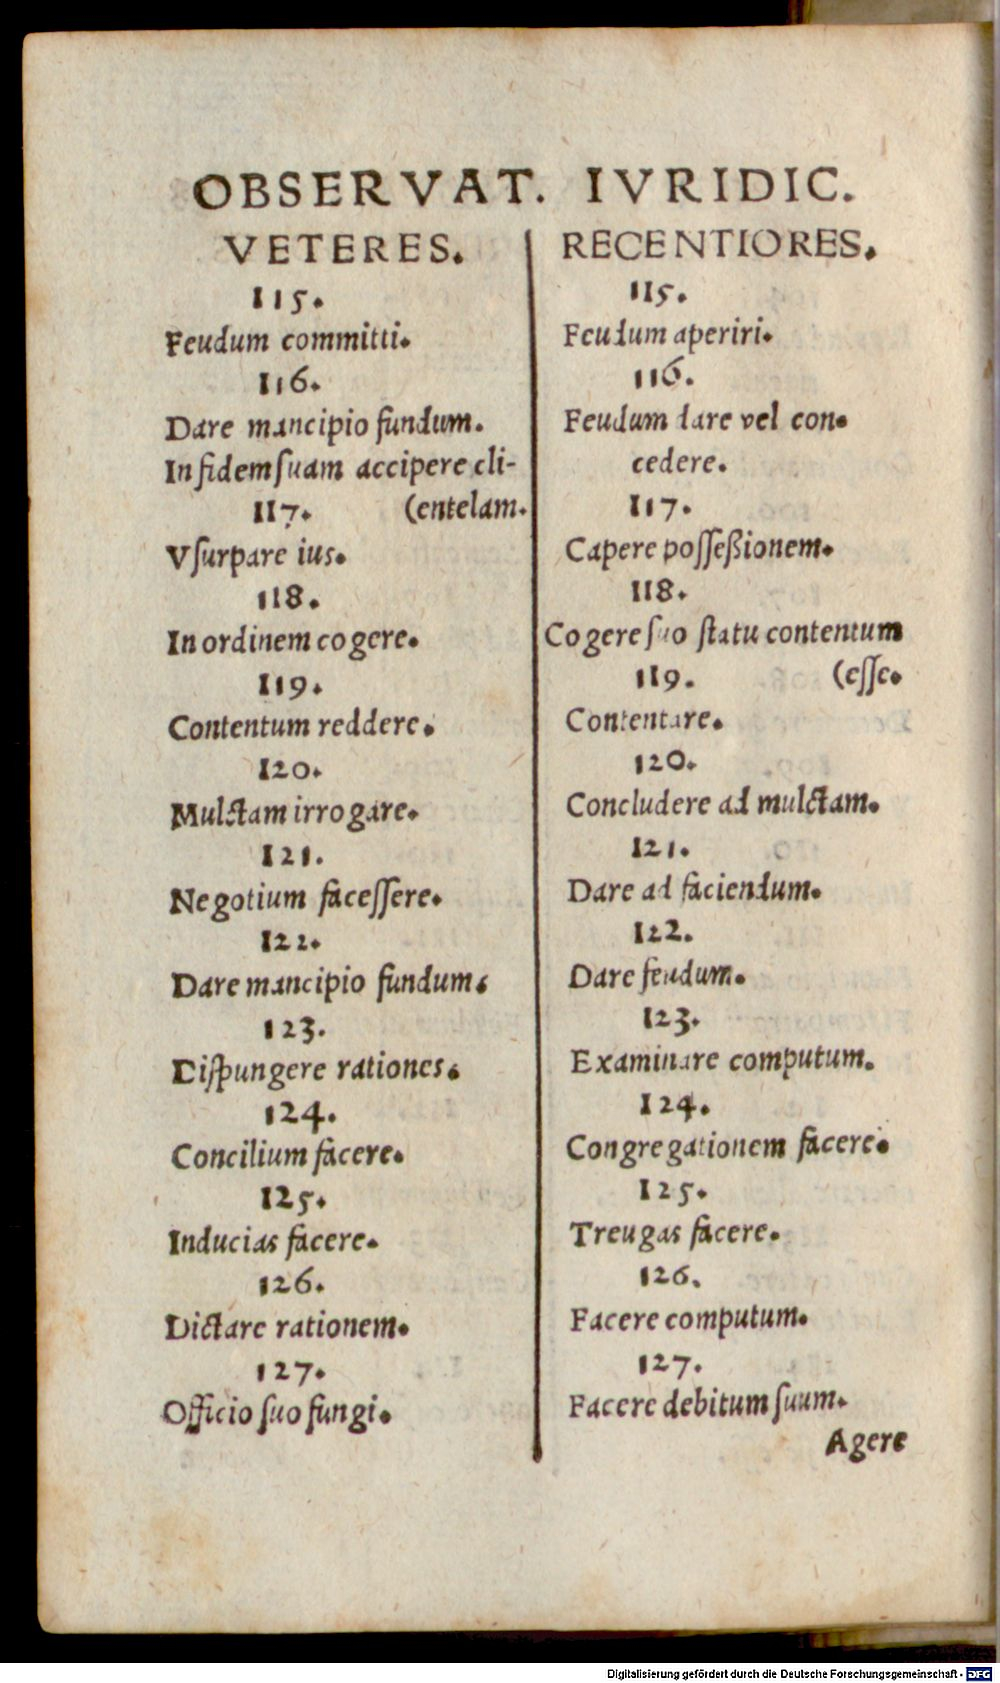 OBSERVAT. IVRIDIC.
VETERES.
115.
Feudum committi.
116.
Dare mancipio fundum.
In fidem ſuam accipere cli-
117. (entelam.
Vſurpare ius.
118.
In ordinem cogere.
119.
Contentum reddere.
120.
Mulctam irrogare.
121.
Negotium faceſſere.
122.
Dare mancipio fundum.
123.
Diſpungere rationes.
124.
Concilium facere.
125.
Inducias facere.
126.
Dictare rationem.
127.
Officio ſuo fungi.
RECENTIORES.
115.
Feudum aperiri.
116.
Feudum dare vel con-
cedere.
117.
Capere poſſeßionem.
118.
Cogere ſuo ſtatu contentum
119. (eſſe.
Contentare.
120.
Concludere ad mulctam.
121.
Dare ad faciendum.
122.
Dare feudum.
123.
Examinare computum.
124.
Congregationem facere.
125.
Treugas facere.
126.
Facere computum.
127.
Facere debitum ſuum.
Agere
Digitalisierung gefördert durch die Deutsche Forschungsgemeinschaft - DFG